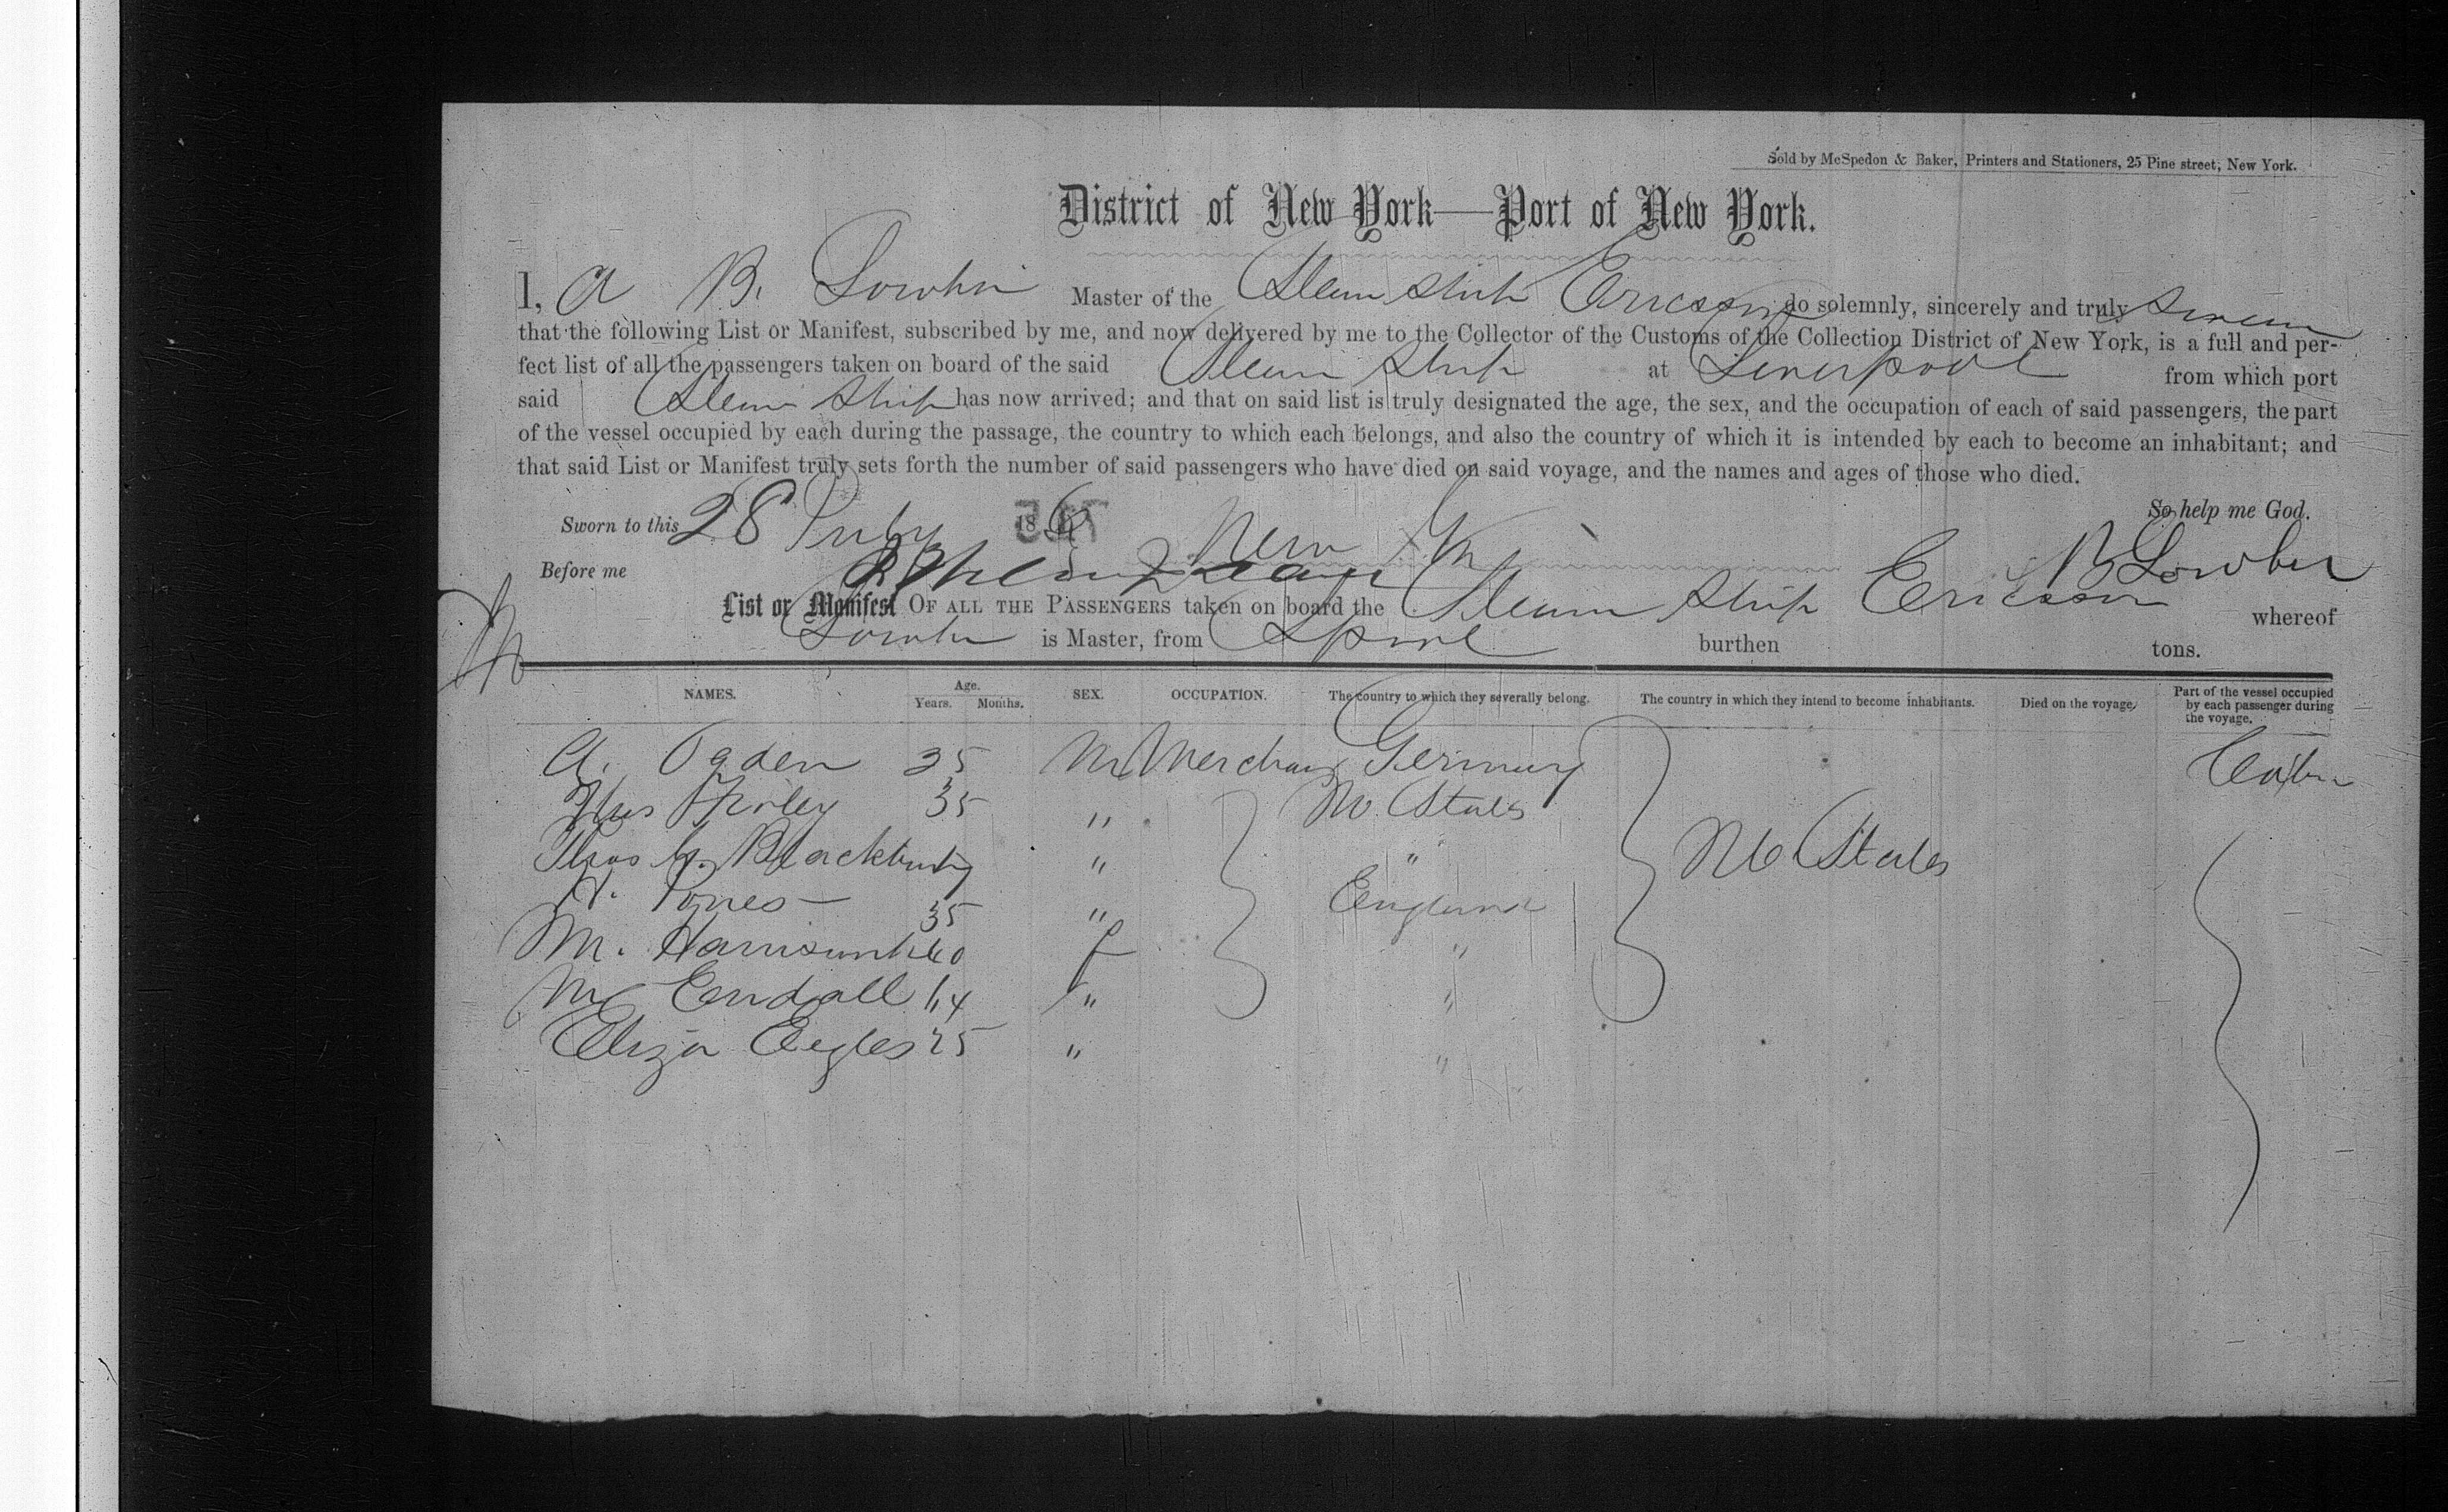 Sold by McSpedon & Baker, Printers and Stationers, 25 Pine street, New York.
District of New York—Port of New York.
I, A B. Lowber Master of the Steam Ship Ericsson do solemnly, sincerely and truly swear
that the following List or Manifest, subscribed by me, and now delivered by me to the Collector of the Customs of the Collection District of New York, is a full and per-
fect list of all the passengers taken on board of the said Steam Ship at Liverpool from which port
said Steam Ship has now arrived; and that on said list is truly designated the age, the sex, and the occupation of each of said passengers, the part
of the vessel occupied by each during the passage, the country to which each belongs, and also the country of which it is intended by each to become an inhabitant; and
that said List or Manifest truly sets forth the number of said passengers who have died on said voyage, and the names and ages of those who died.
So help me God.
Sworn to this 28 July 186
Before me B Lowber
List or Manifest OF ALL THE PASSENGERS taken on board the Steam Ship Ericsson whereof
Lowber is Master, from Lpool burthen tons.
NAMES. Age. Years. Months. SEX. OCCUPATION. The country to which they severally belong. The country in which they intend to become inhabitants. Died on the voyage. Part of the vessel occupied by each passenger during the voyage.
A. Ogden 35 M Merchant Germany Cabin
35 " U States
Thos Blackburn " " U States
Jones 35 " England
M. Harrison 40 f "
Endall 14 " "
Eliza Eigles 25 " "